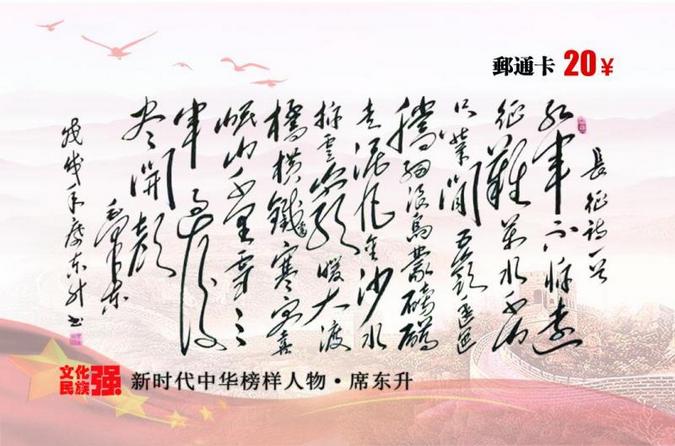 郵通卡 20¥
長征诗一首
红军不怕远
征難万水千山
只等闲五岭逶迤
腾细浪乌蒙磅礴
走泥丸金沙水
拍雲崖暖大渡
橋横鐵索寒更喜
岷山千里雪三
军过后
尽開颜
毛泽东
戊戌年席东升书
文化
民族
强
新时代中华榜样人物·席东升